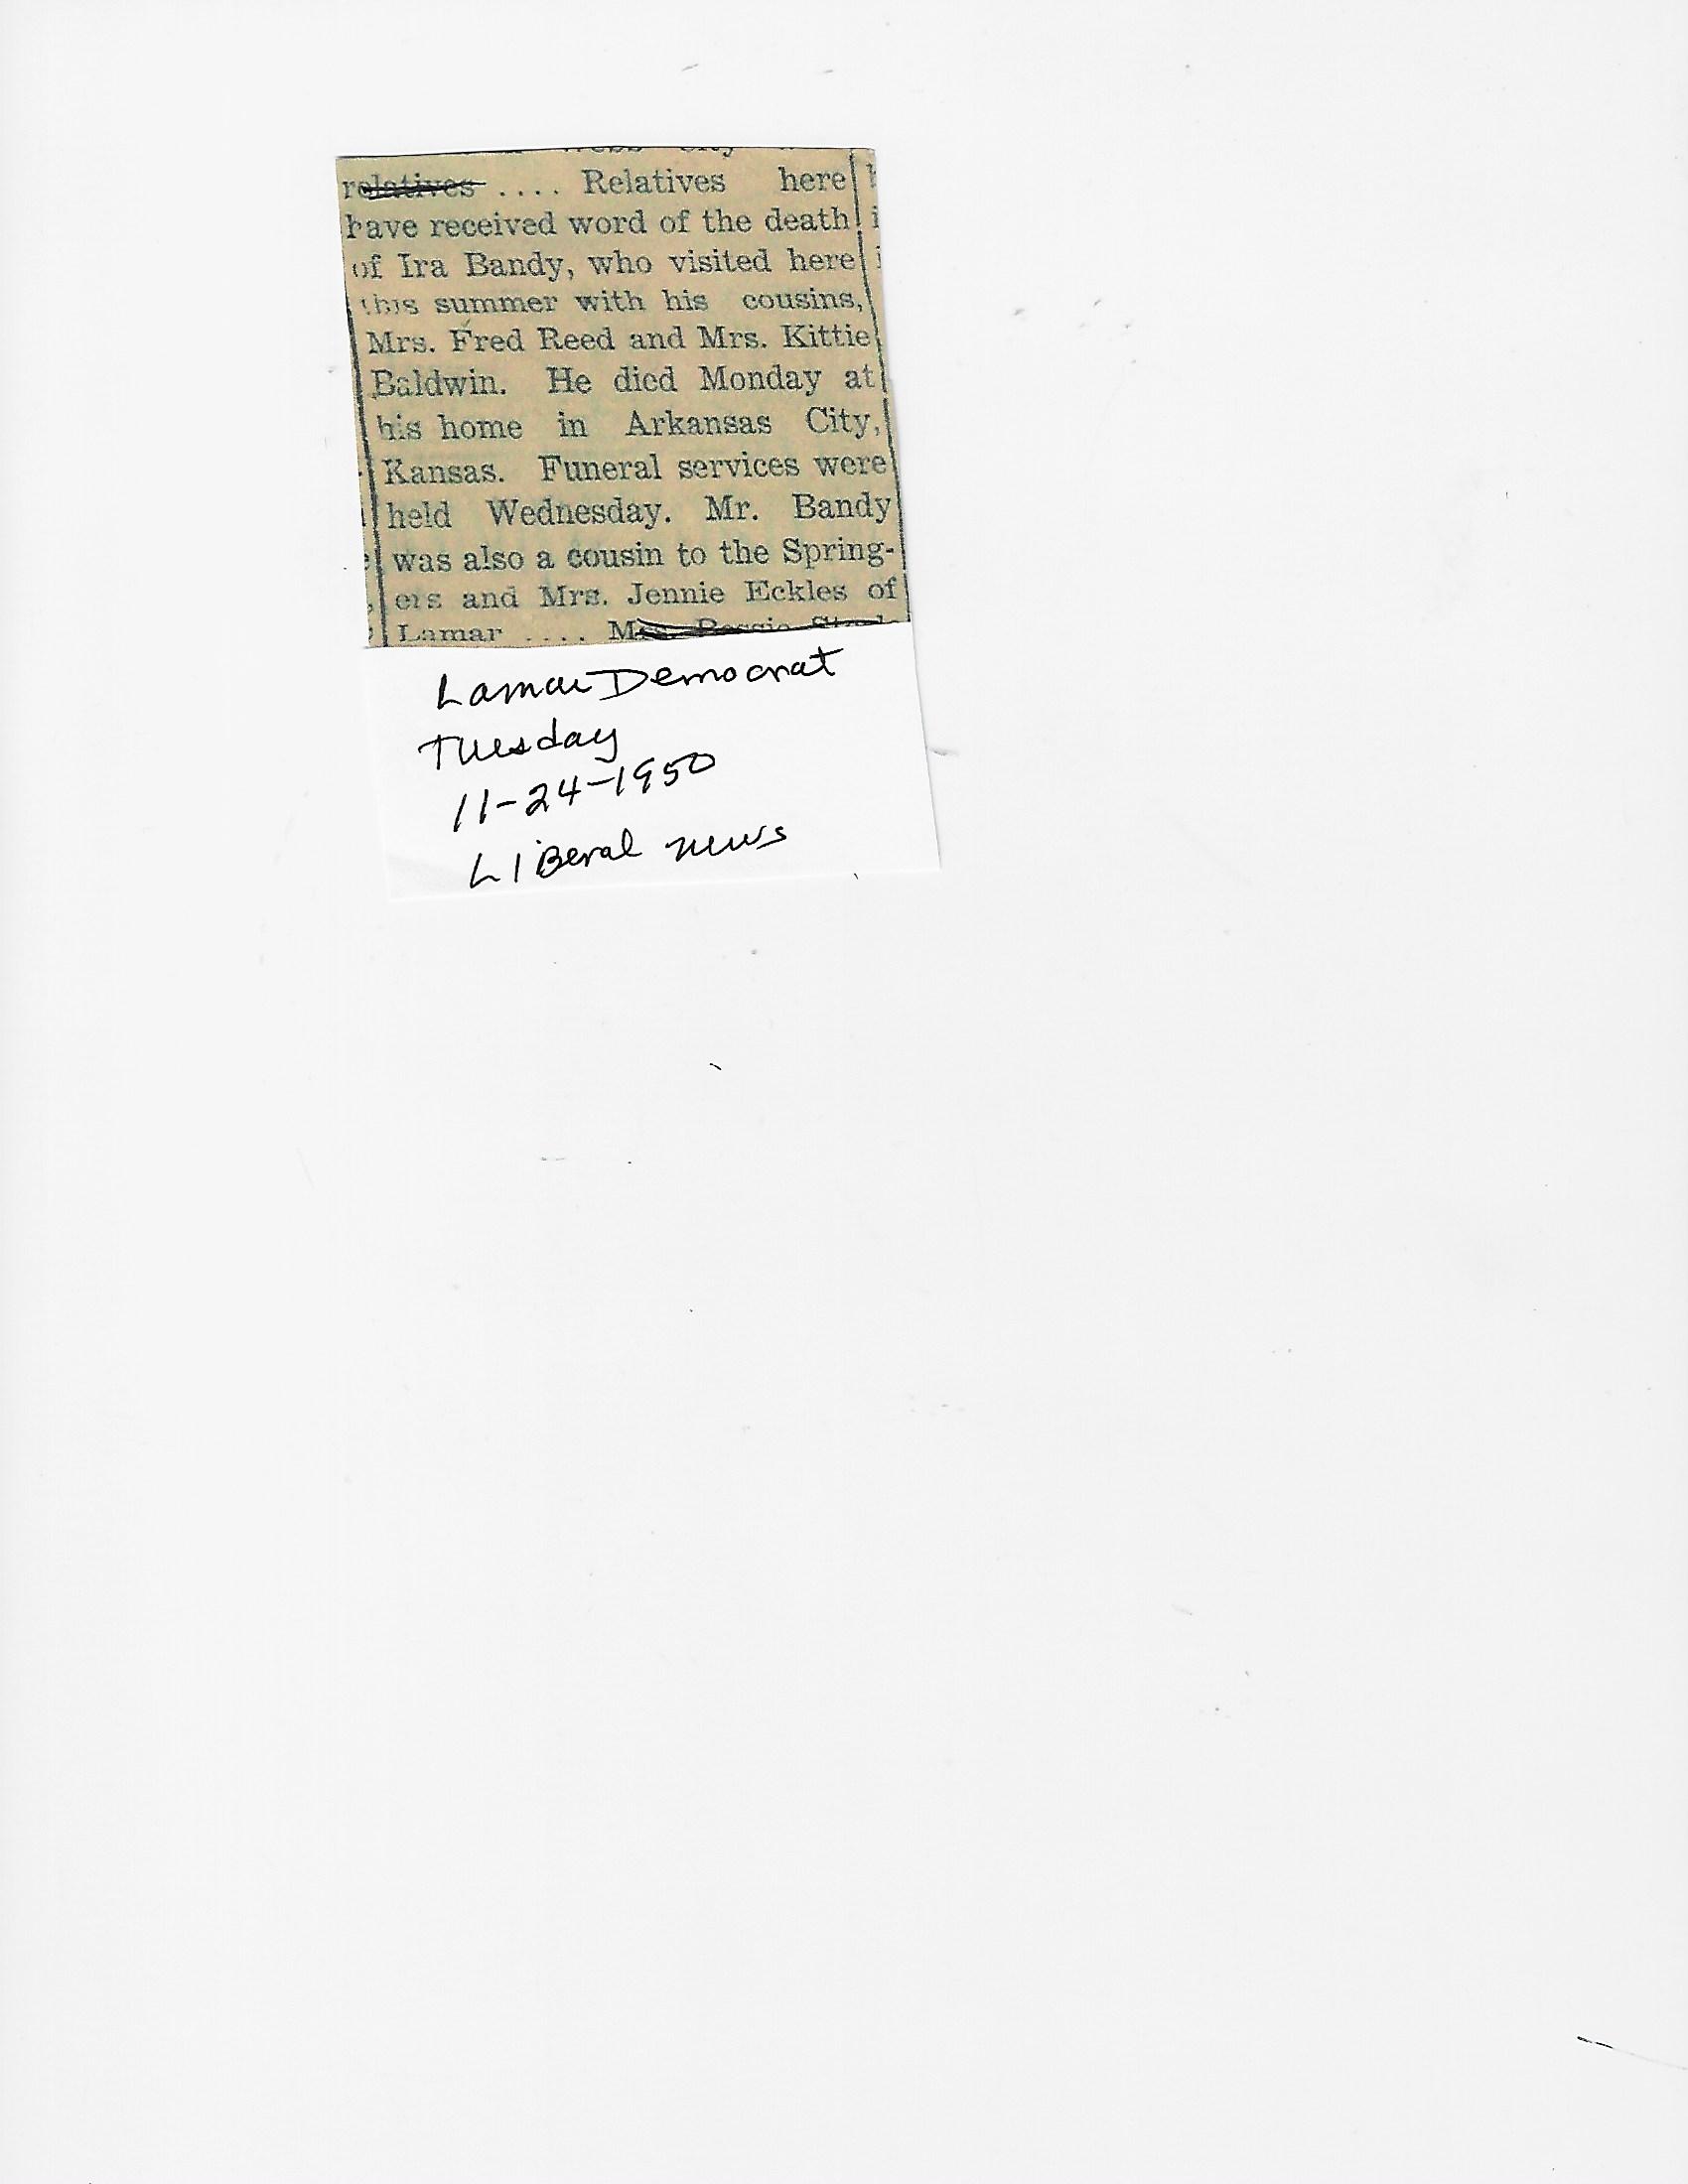 Webb City
relatives .... Relatives here
have received word of the death
of Ira Bandy, who visited here
this summer with his cousins,
Mrs. Fred Reed and Mrs. Kittie
Baldwin. He died Monday at
his home in Arkansas City,
Kansas. Funeral services were
held Wednesday. Mr. Bandy
was also a cousin to the Spring-
ers and Mrs. Jennie Eckles of
Lamar .... Mrs. Bessie
Lamar Democrat
Tuesday
11-24-1950
Liberal news